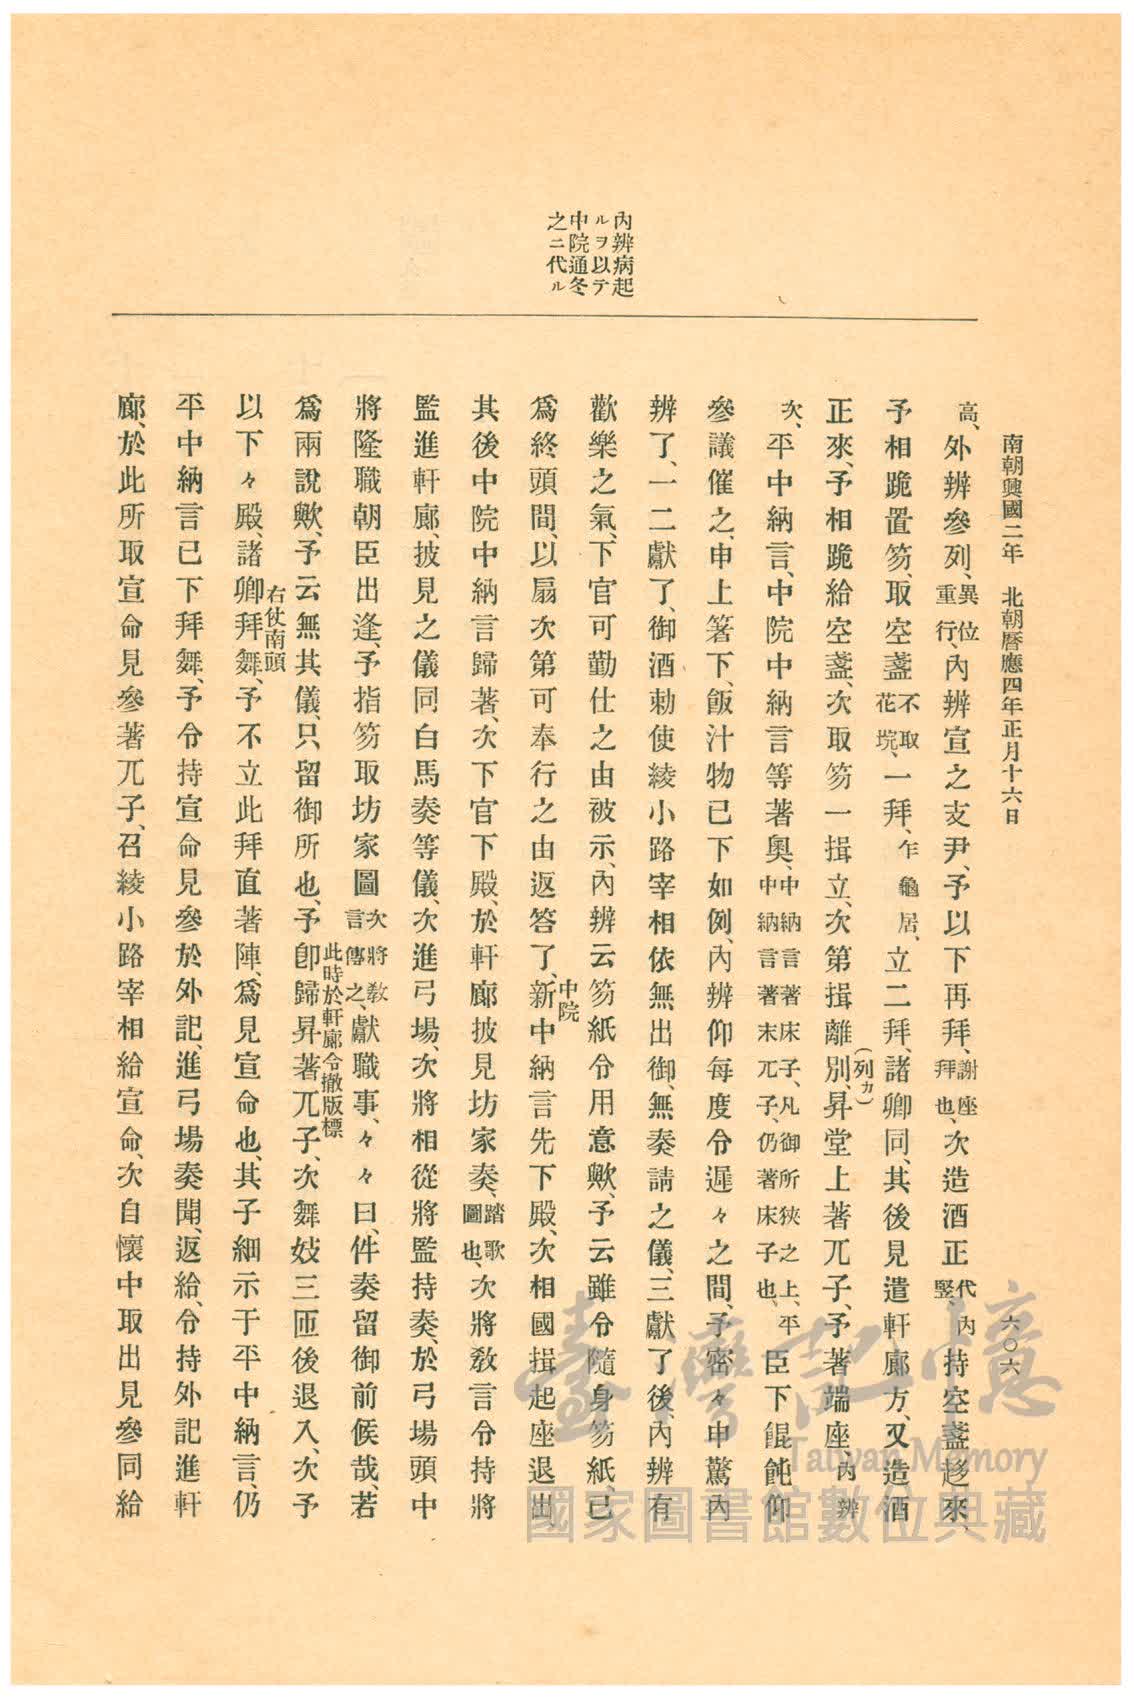 南朝興國二年　北朝曆應四年正月十六日
六〇六
內辨病起
ルヲ以テ
中院通冬
之ニ代ル
高、外辨參列、異位重行、內辨宣之支尹、予以下再拜、謝座拜也、次造酒正代內竪、持空盞趍來、
予相跪置笏、取空盞不取花垸、一拜、乍龜居、立二拜、諸卿同、其後見遣軒廊方、又造酒
正來、予相跪給空盞、次取笏一揖立、次第揖離別、(列カ)昇堂上著兀子、予著端座、內辨
次、平中納言、中院中納言等著奧、中納言著床子、凡御所狹之上、平中納言著末兀子、仍著床子也、臣下餛飩仰
參議催之、申上箸下、飯汁物已下如例、內辨仰每度令遲々之間、予密々申驚內
辨了、一二獻了、御酒勅使綾小路宰相依無出御、無奏請之儀、三獻了後、內辨有
歡樂之氣、下官可勤仕之由被示、內辨云笏紙令用意歟、予云雖令隨身笏紙、已
爲終頭間、以扇次第可奉行之由返答了、新中院中納言先下殿、次相國揖起座退出
其後中院中納言歸著、次下官下殿、於軒廊披見坊家奏、踏歌圖也、次將敎言令持將
監進軒廊、披見之儀同白馬奏等儀、次進弓場、次將相從將監持奏、於弓場頭、中
將隆職朝臣出逢、予指笏取坊家圖次將敎言傳之、獻職事、々々曰、件奏留御前候哉、若
爲兩說歟、予云無其儀、只留御所也、予卽歸昇著兀子、此時於軒廊令撤版標次舞妓三匝後退入、次予
以下々殿、諸卿拜舞、右仗南頭予不立此拜直著陣、爲見宣命也、其子細示于平中納言、仍
平中納言已下拜舞、予令持宣命見參於外記、進弓場奏聞、返給、令持外記進軒
廊、於此所取宣命見參著兀子、召綾小路宰相給宣命、次自懷中取出見參同給
臺灣記憶
Taiwan Memory
國家圖書館數位典藏